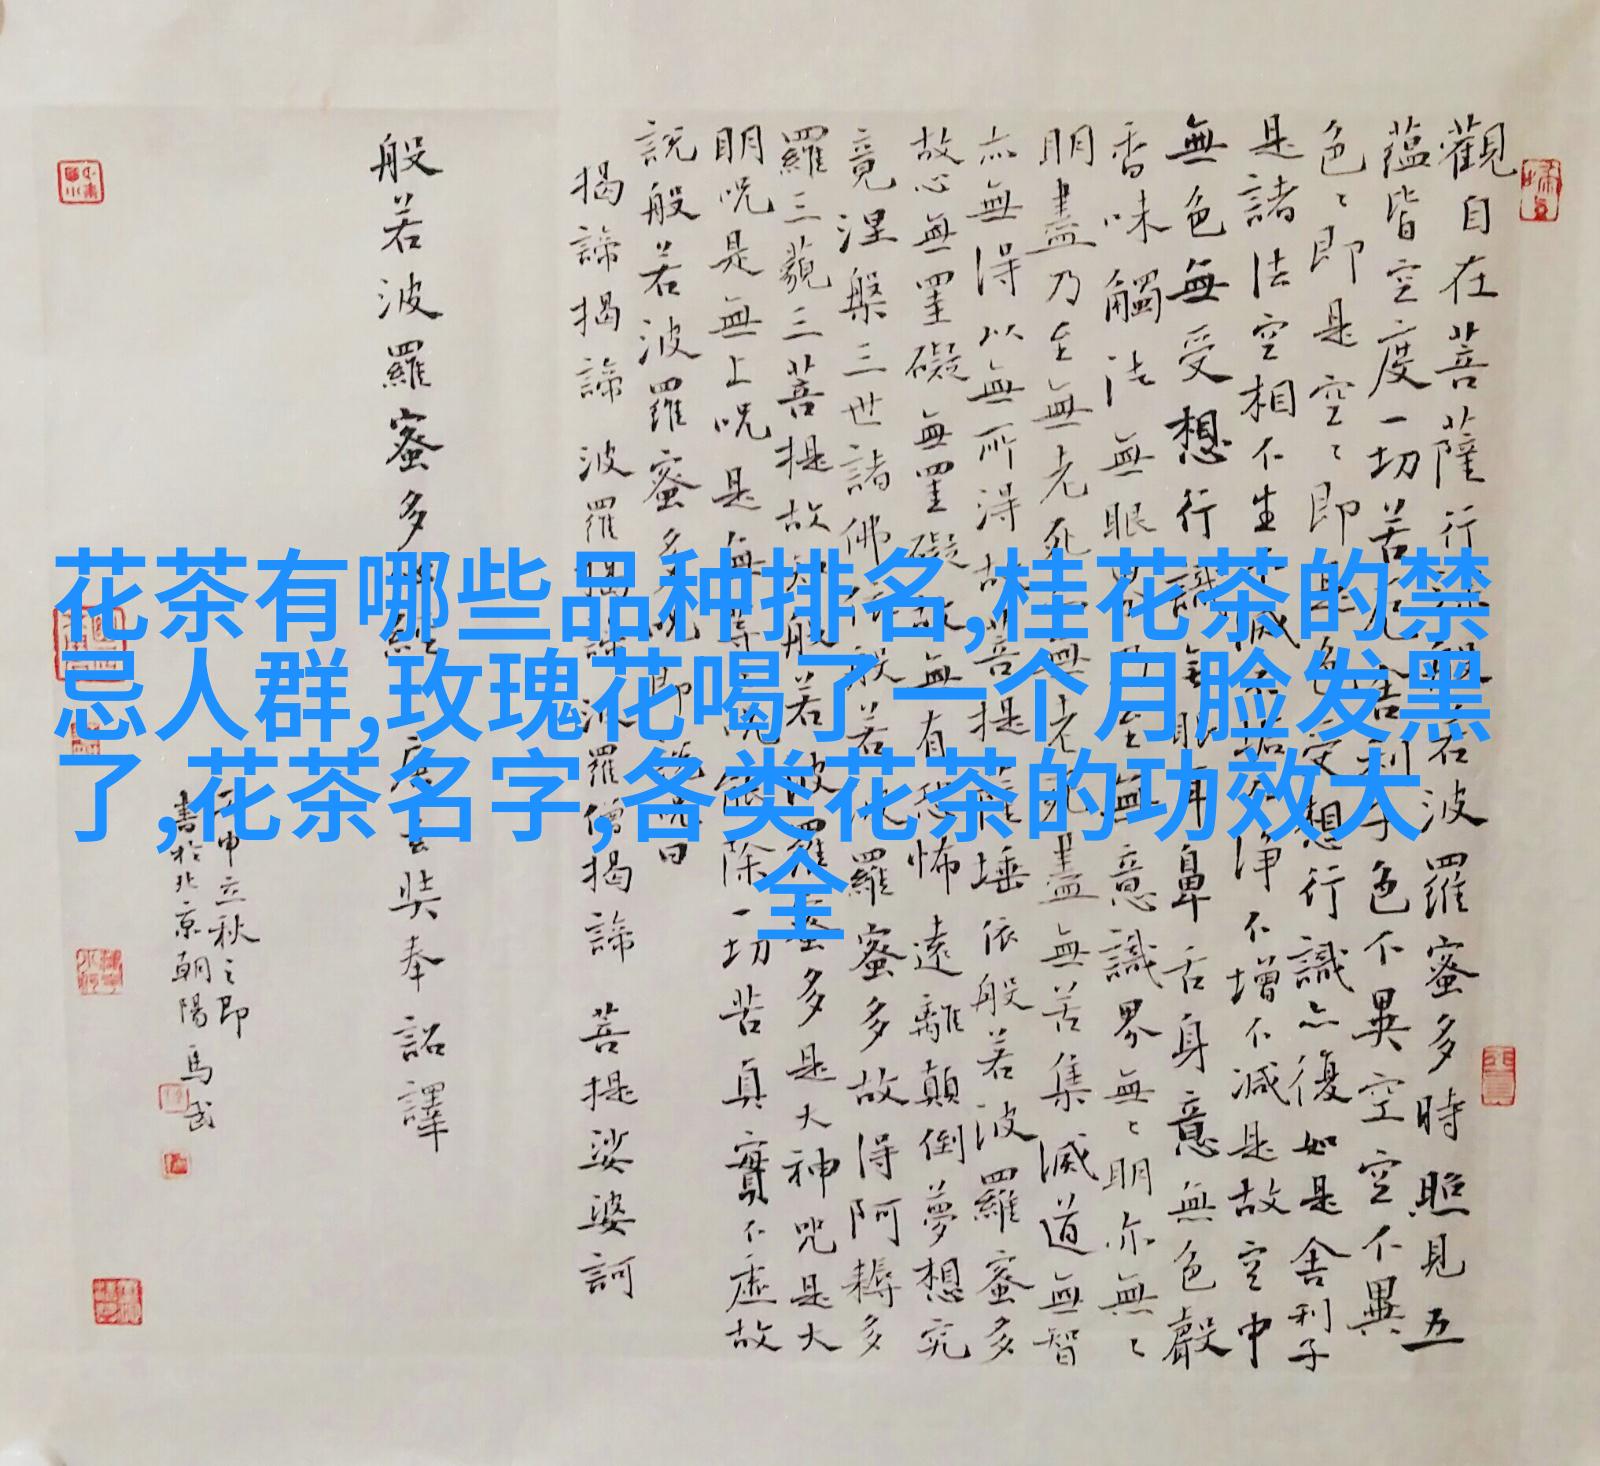 花茶有哪些品种排名,桂花茶的禁
忌人群,玫瑰花喝了一个月脸发黑
了,花茶名字,各类花茶的功效大
全
觀自在菩薩行深般若波羅蜜多時照見五
蘊皆空度一切苦厄舍利子色不異空空不異
色〻即是空〻即是色受想行識亦復如是舍利子
是諸法空相不生不滅不垢不淨不增不減是故空中
無色無受想行識無眼耳鼻舌身意無色聲
香味觸法無眼界乃至無意識界無〻明亦無〻
明盡乃至無老死亦無老死盡無苦集滅道無智
亦無得以無所得故菩提薩埵依般若波羅蜜多
故心無罣礙無罣礙故無有恐怖遠離顛倒夢想究
竟涅槃三世諸佛依般若波羅蜜多故得阿耨多
羅三藐三菩提故知般若波羅蜜多是大神咒是大
明呪是無上呪是無等等呪能除一切苦真實不虛故
說般若波羅蜜多呪即說呪曰
揭諦揭諦 波羅揭諦 波羅僧揭諦 菩提娑婆訶
般若波羅蜜多心經 唐玄奘奉詔譯
申立秋之即
書於北京朝陽 馬武